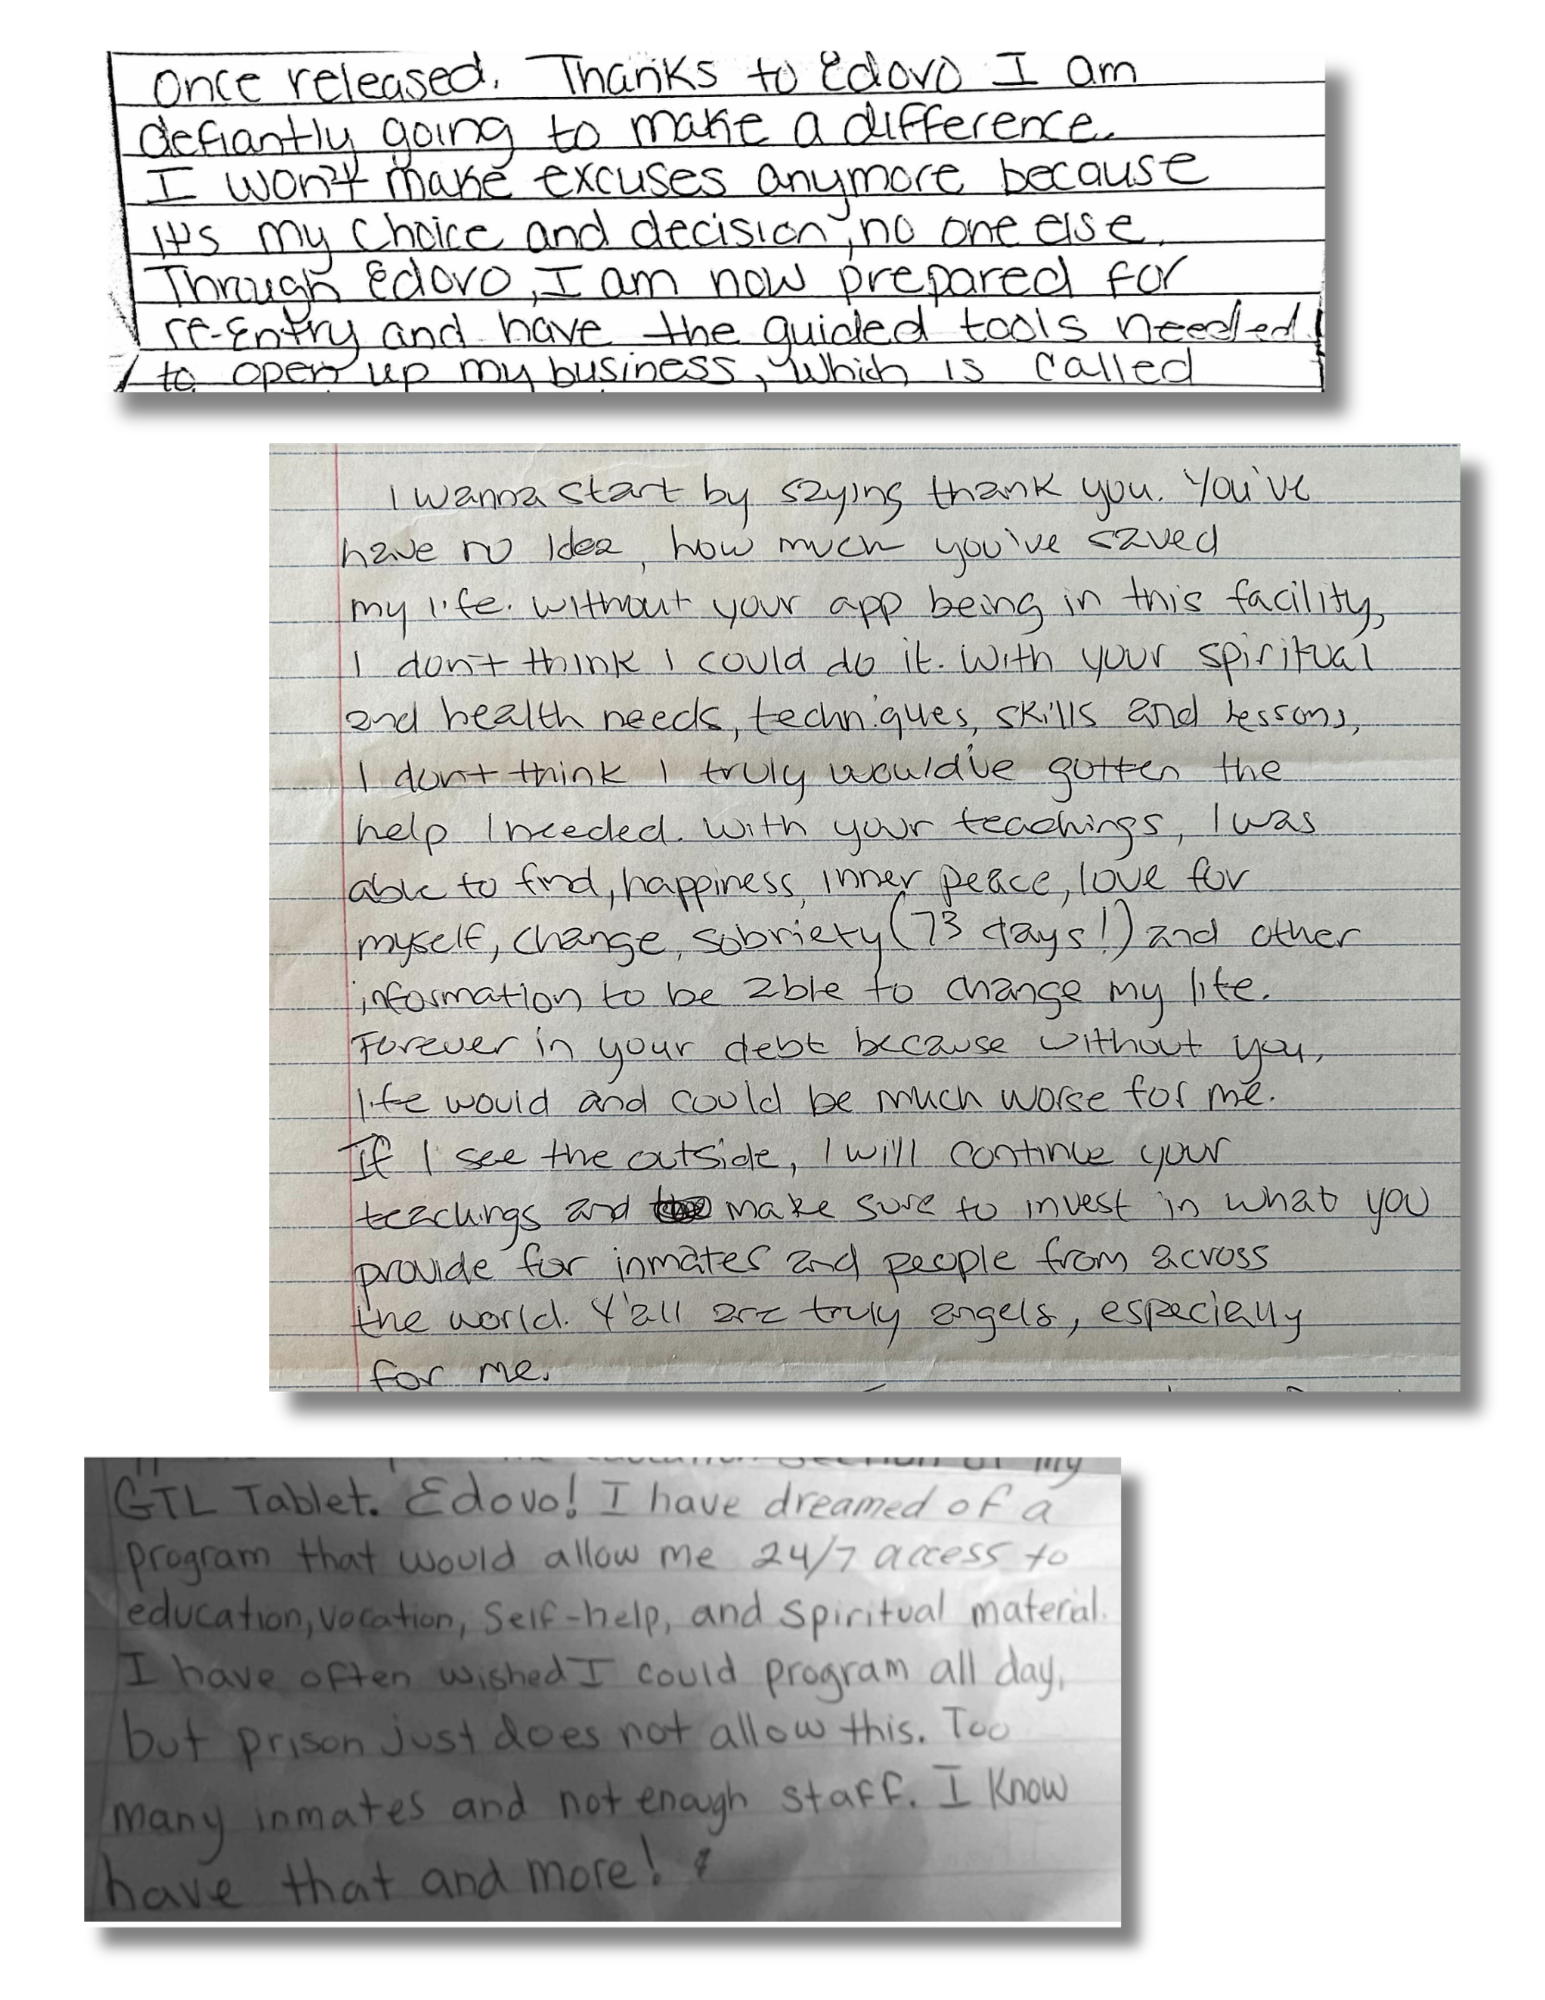 Once released. Thanks to Edovo I am
defiantly going to make a difference.
I won't make excuses anymore because
it's my choice and decision, no one else.
Through Edovo, I am now prepared for
re-Entry and have the guided tools needed
to open up my business, which is called
I wanna start by saying thank you. You've
have no idea, how much you've saved
my life. Without your app being in this facility,
I don't think I could do it. With your spiritual
and health needs, techniques, skills and lessons,
I don't think I truly would've gotten the
help I needed. With your teachings, I was
able to find, happiness, inner peace, love for
myself, change, sobriety (73 days!) and other
information to be able to change my life.
Forever in your debt because without you,
life would and could be much worse for me.
If I see the outside, I will continue your
teachings and make sure to invest in what you
provide for inmates and people from across
the world. Y'all are truly angels, especially
for me.
section of my
GTL Tablet. Edovo! I have dreamed of a
program that would allow me 24/7 access to
education, vocation, Self-help, and Spiritual material.
I have often wished I could program all day,
but prison just does not allow this. Too
many inmates and not enough staff. I Know
have that and more!